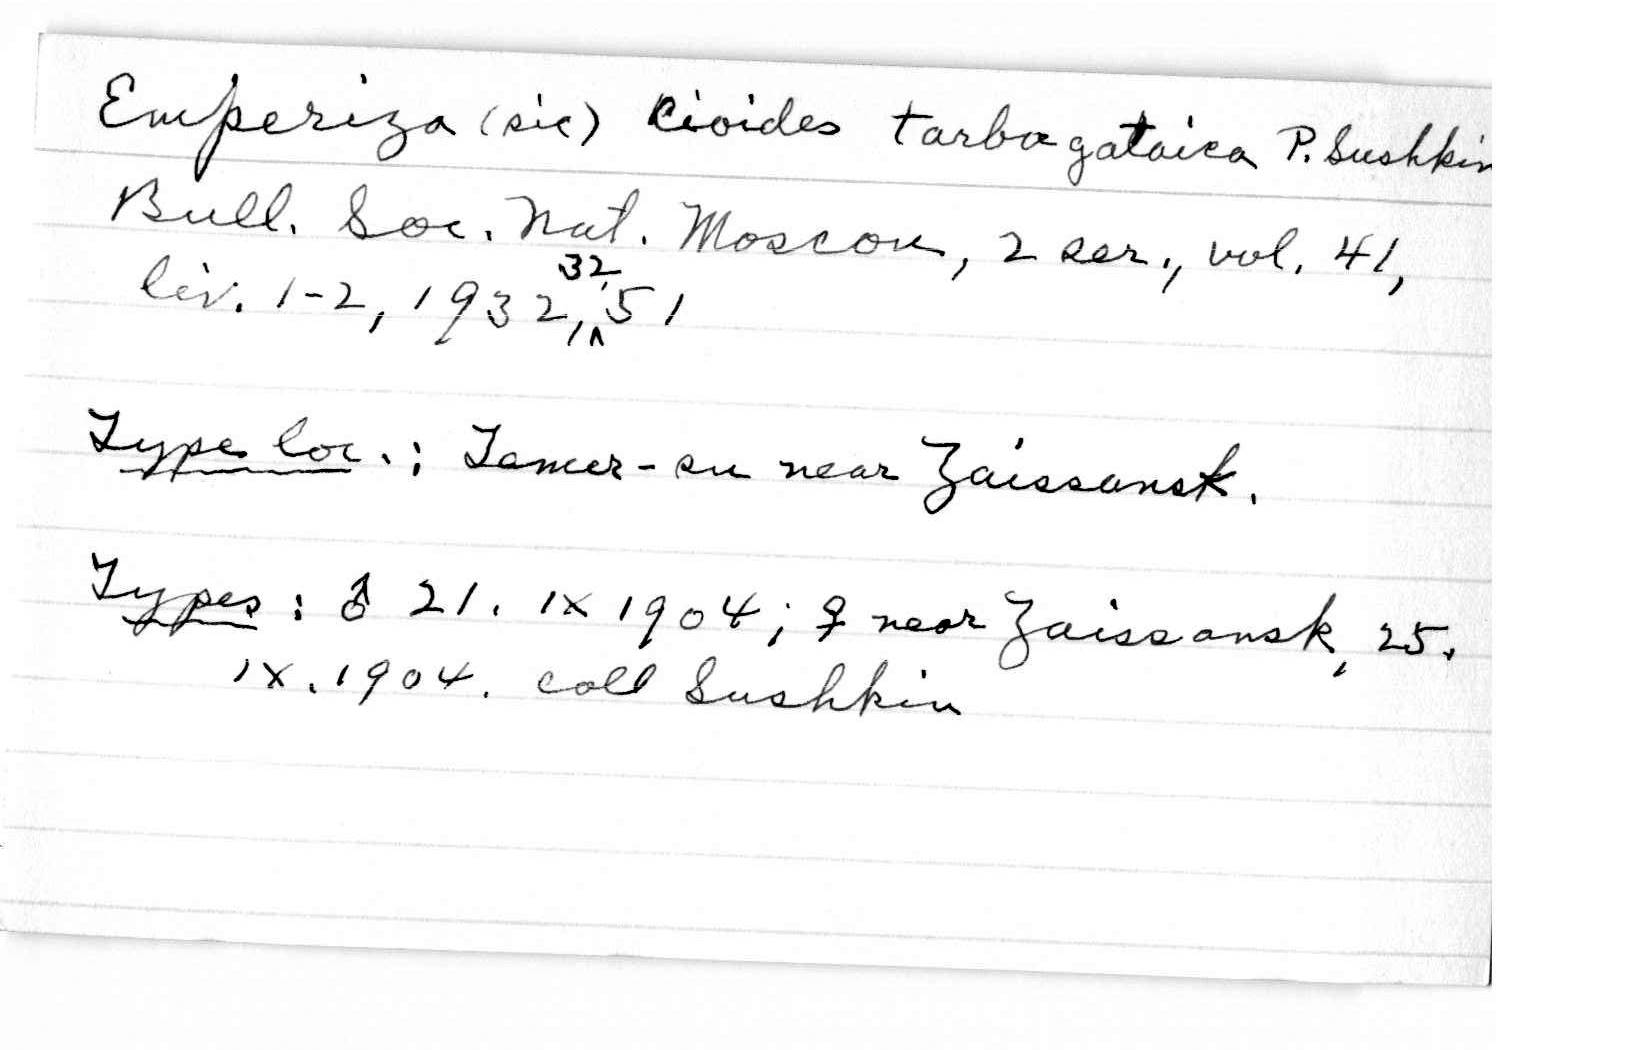 Emperiza (sic) cioides tarbagataica P. Sushkin
Bull. Soc. Nat. Moscou, 2 ser., vol. 41,
liv. 1-2, 1932, 32, 51
Type loc.; Temer-su near Zaissansk.
Types: ♂ 21. IX 1904; ♀ near Zaissansk, 25.
IX. 1904. coll Sushkin